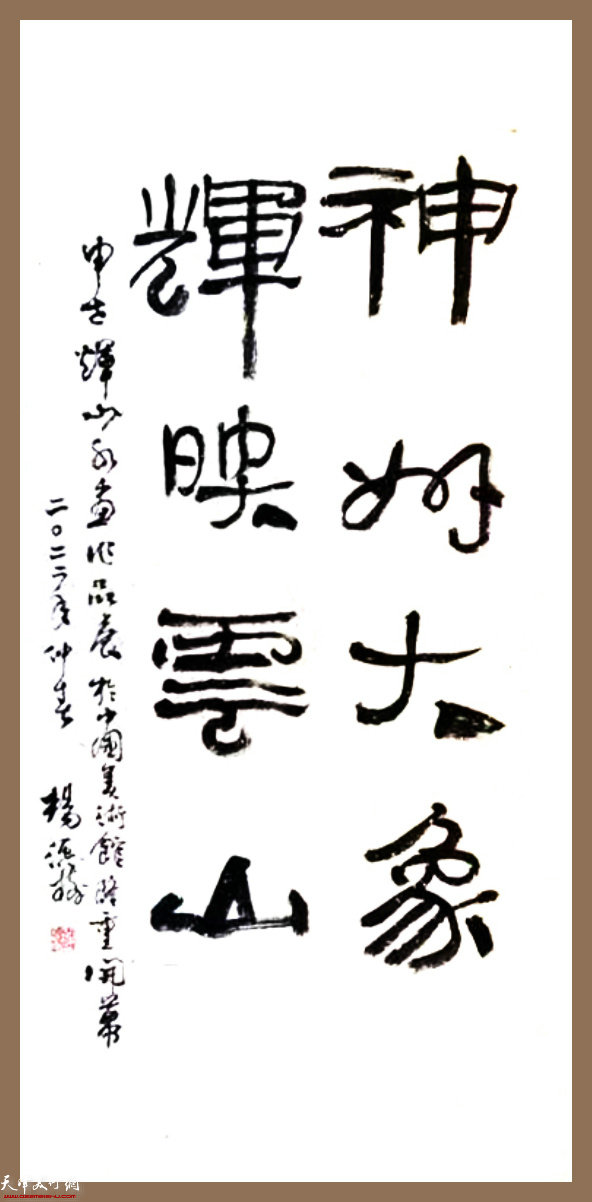 神大象
輝映雲山
申世輝山水畫作品展於中國美術館隆重開幕
二〇二二年仲春 楊德樹
天津美术网